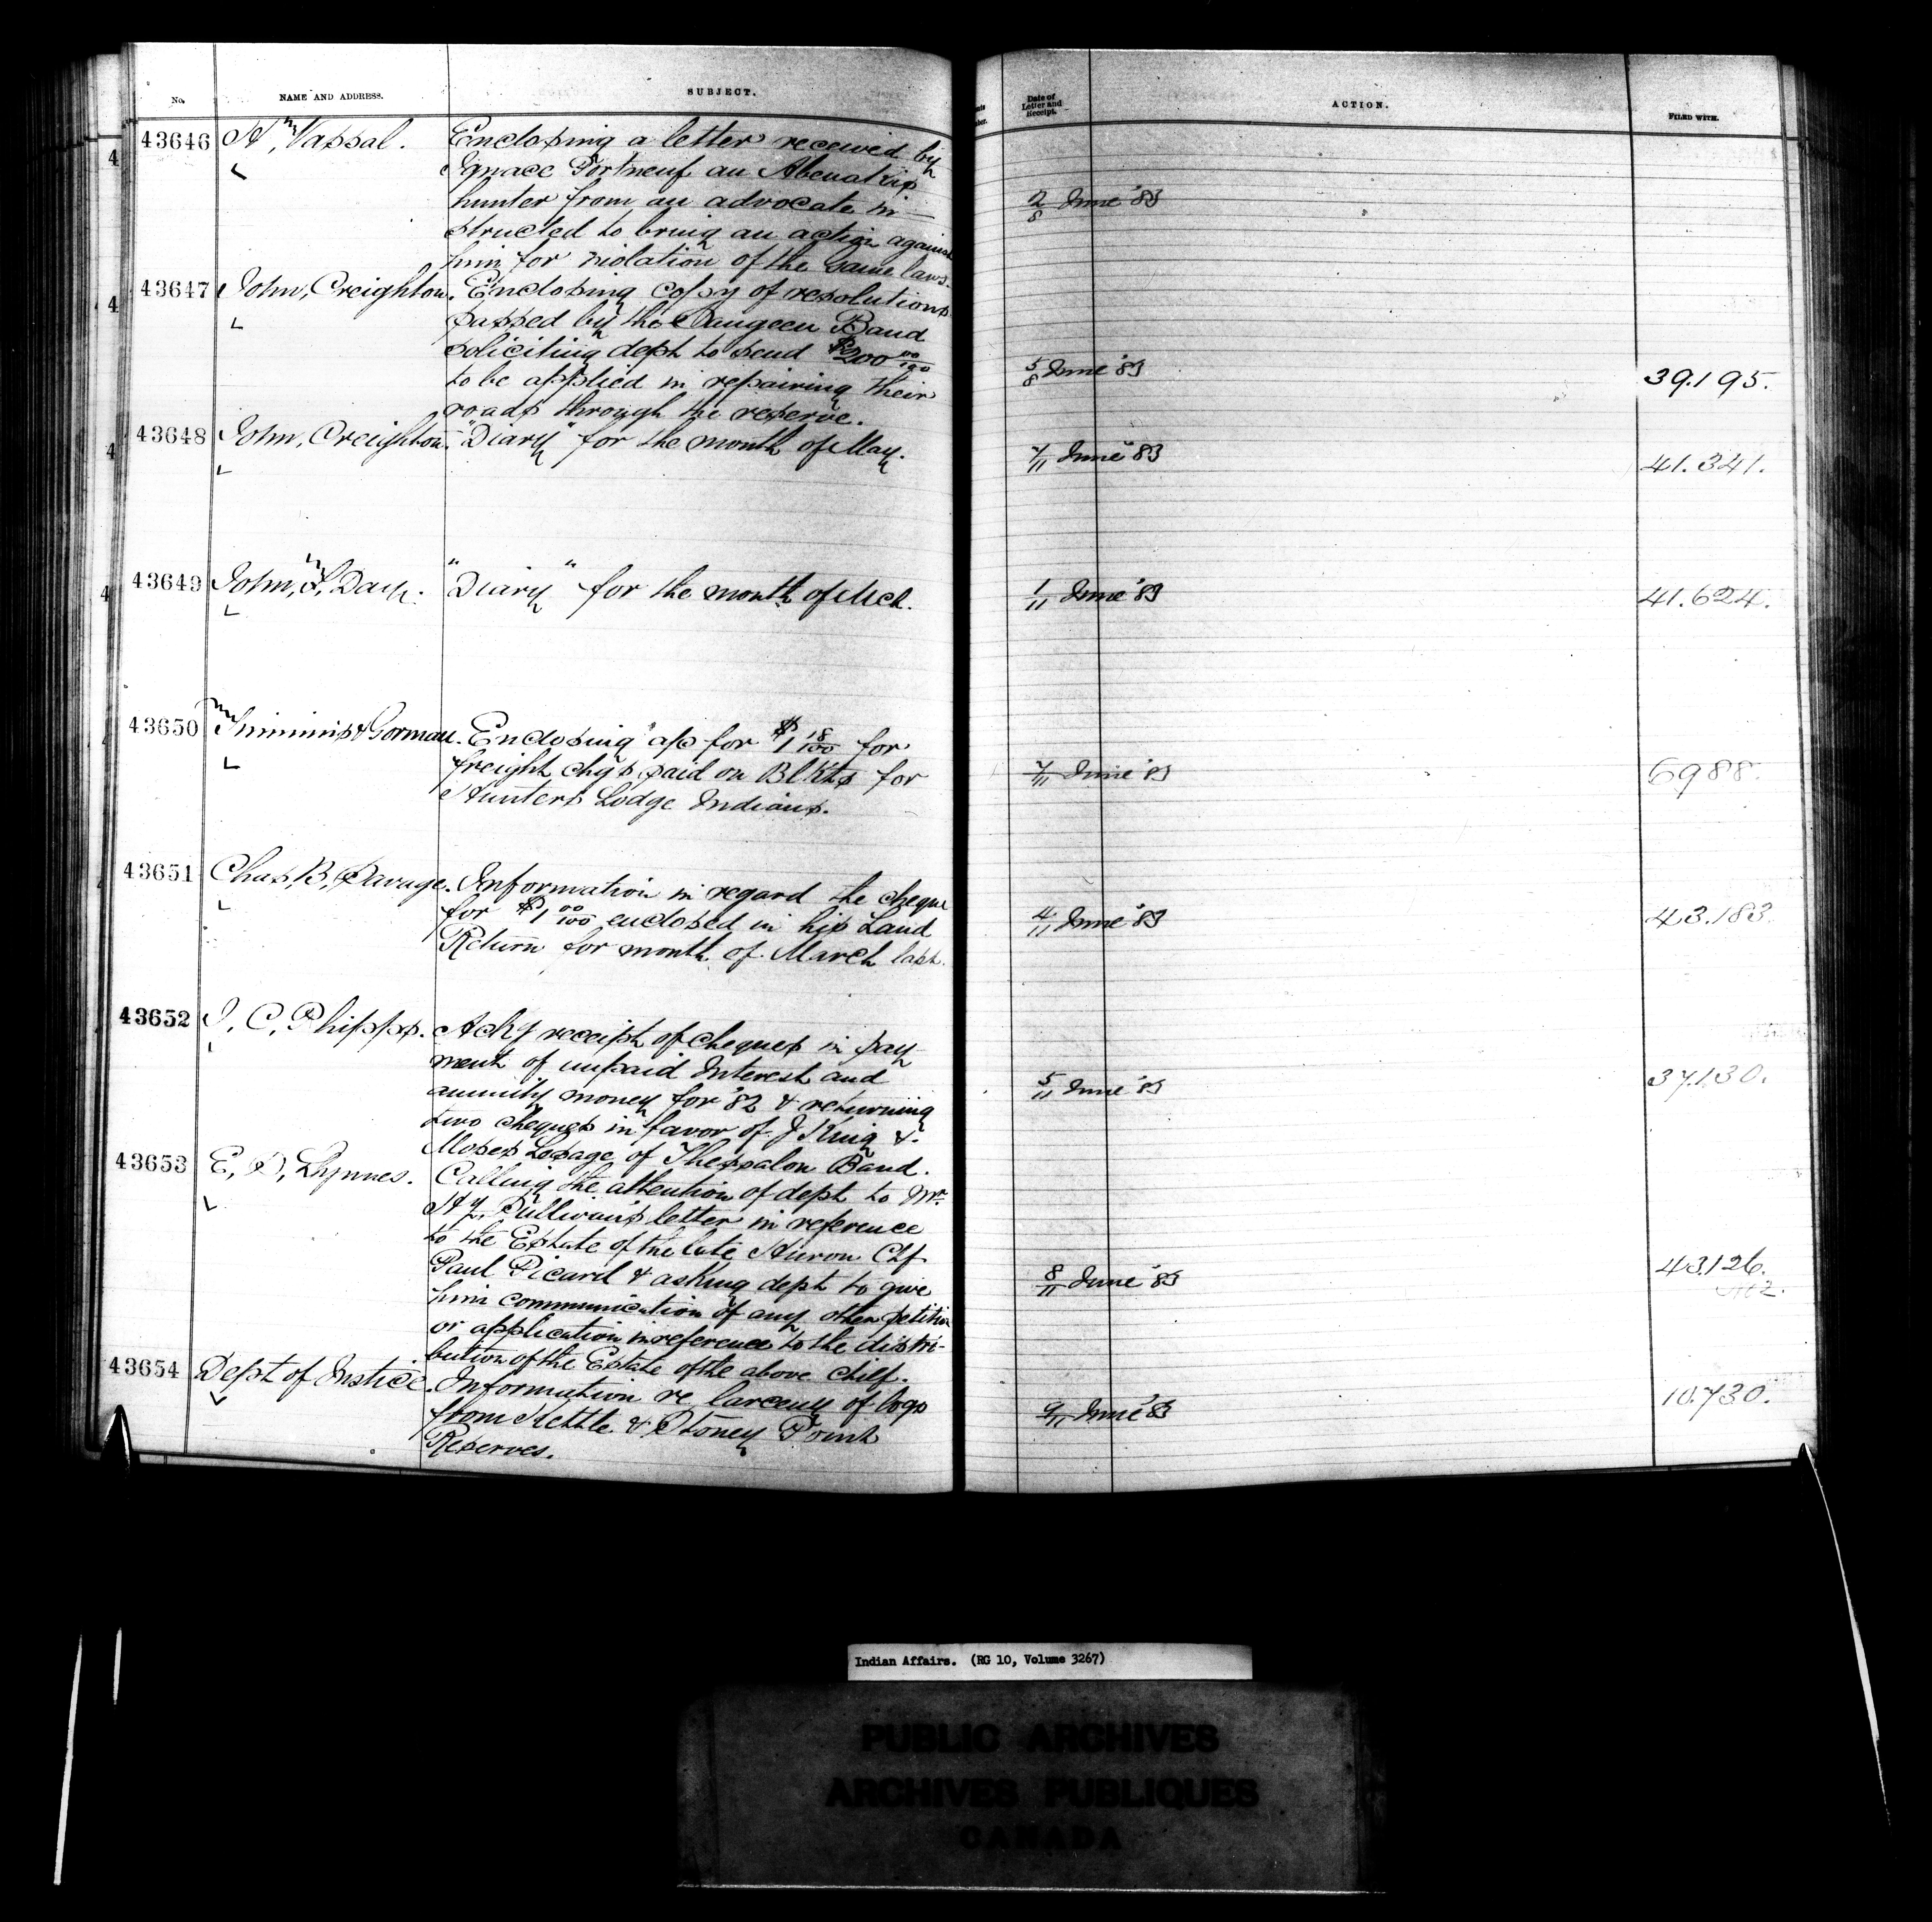 No. NAME AND ADDRESS. SUBJECT. Date of Letter and Receipt. ACTION. FILED WITH.
43646 H, Vassal. Enclosing a letter received by
Ignace Portneuf an Abenakis
hunter from an advocate in-
structed to bring an action against
him for violation of the same laws.
2/8 June '83
43647 John, Creighton. Enclosing copy of resolutions
passed by the Saugeen Band
soliciting dept to send $200 00/100
to be applied in repairing their
roads through the reserve.
5/8 June '83 39.195.
43648 John, Creighton. "Diary" for the month of May.
7/11 June '83 41.341.
43649 John, F, Day. "Diary" for the month of Mch.
1/11 June '83 41.624.
43650 & Gorman. Enclosing a/c for $1 18/100 for
freight chgs paid on Blkts for
Hunters Lodge Indians.
7/11 June '83 6988.
43651 Chas, B, Savage. Information in regard the cheque
for $1 00/100 enclosed in his Land
Return for month of March last.
4/11 June '83 43.183.
43652 J, C, Phipps. Ackg receipt of cheques in pay
ment of unpaid Interest and
annuity money for '82 & returning
two cheques in favor of J King &
Moses Losage of Thessalon Band.
5/11 June '83 37.130.
43653 E, D, Lynnes. Calling the attention of dept to Mr.
Hy. Sullivan's letter in reference
to the Estate of the late Huron Chf
Paul Picard & asking dept to give
him communication of any other petition
or application in reference to the distri-
bution of the Estate of the above chief.
8/11 June '83 43.126.
43654 Dept of Justice. Information re larceny of logs
from Kettle & Stoney Point
Reserves.
9/11 June '83 10.730.
Indian Affairs. (RG 10, Volume 3267)
PUBLIC ARCHIVES
ARCHIVES PUBLIQUES
CANADA